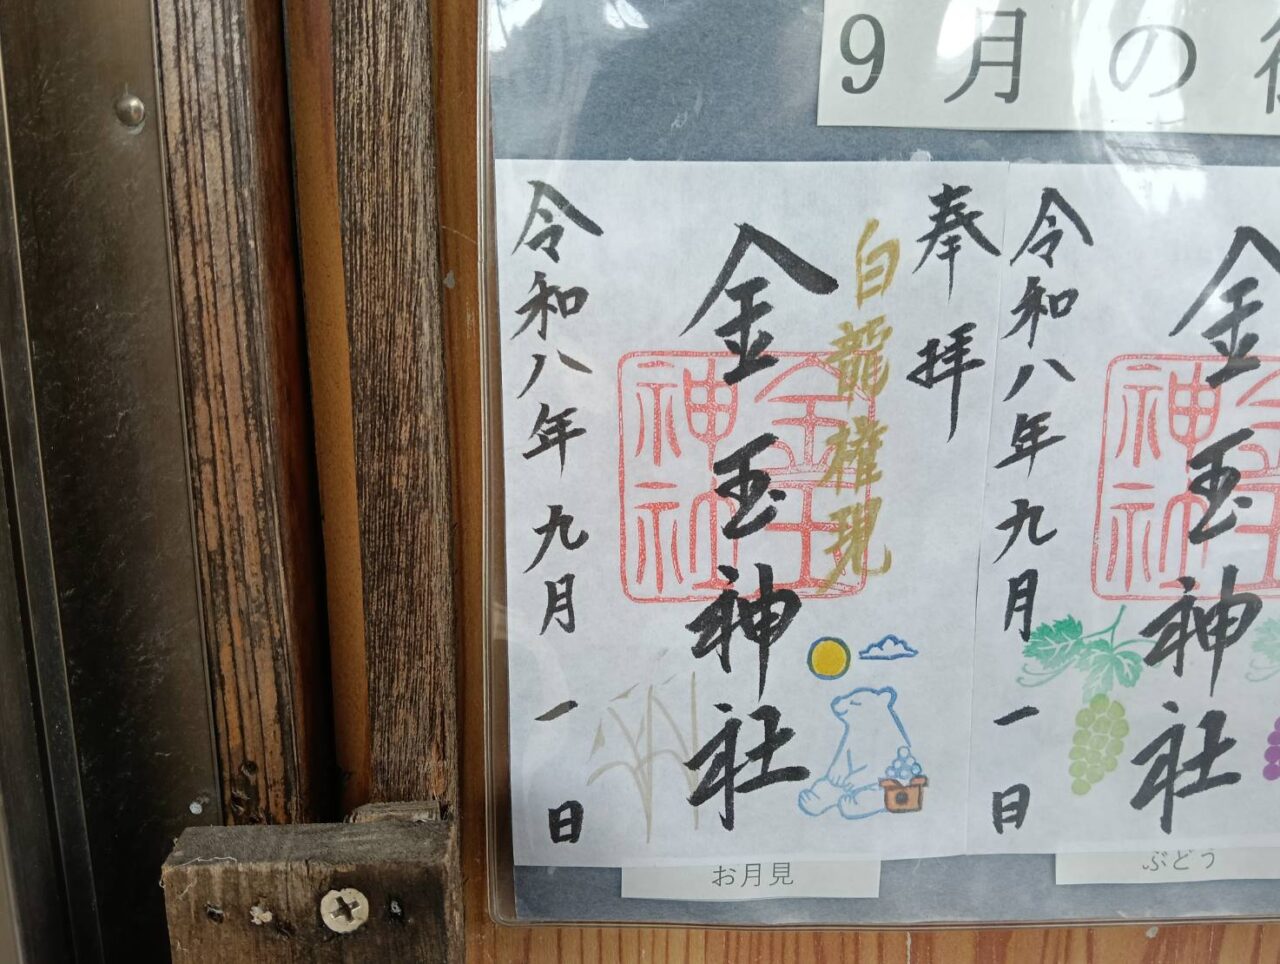 9月の
奉拝
白龍権現
金玉神社
金玉神社
令和八年九月一日
お月見
金玉神社
令和八年九月一日
ぶどう